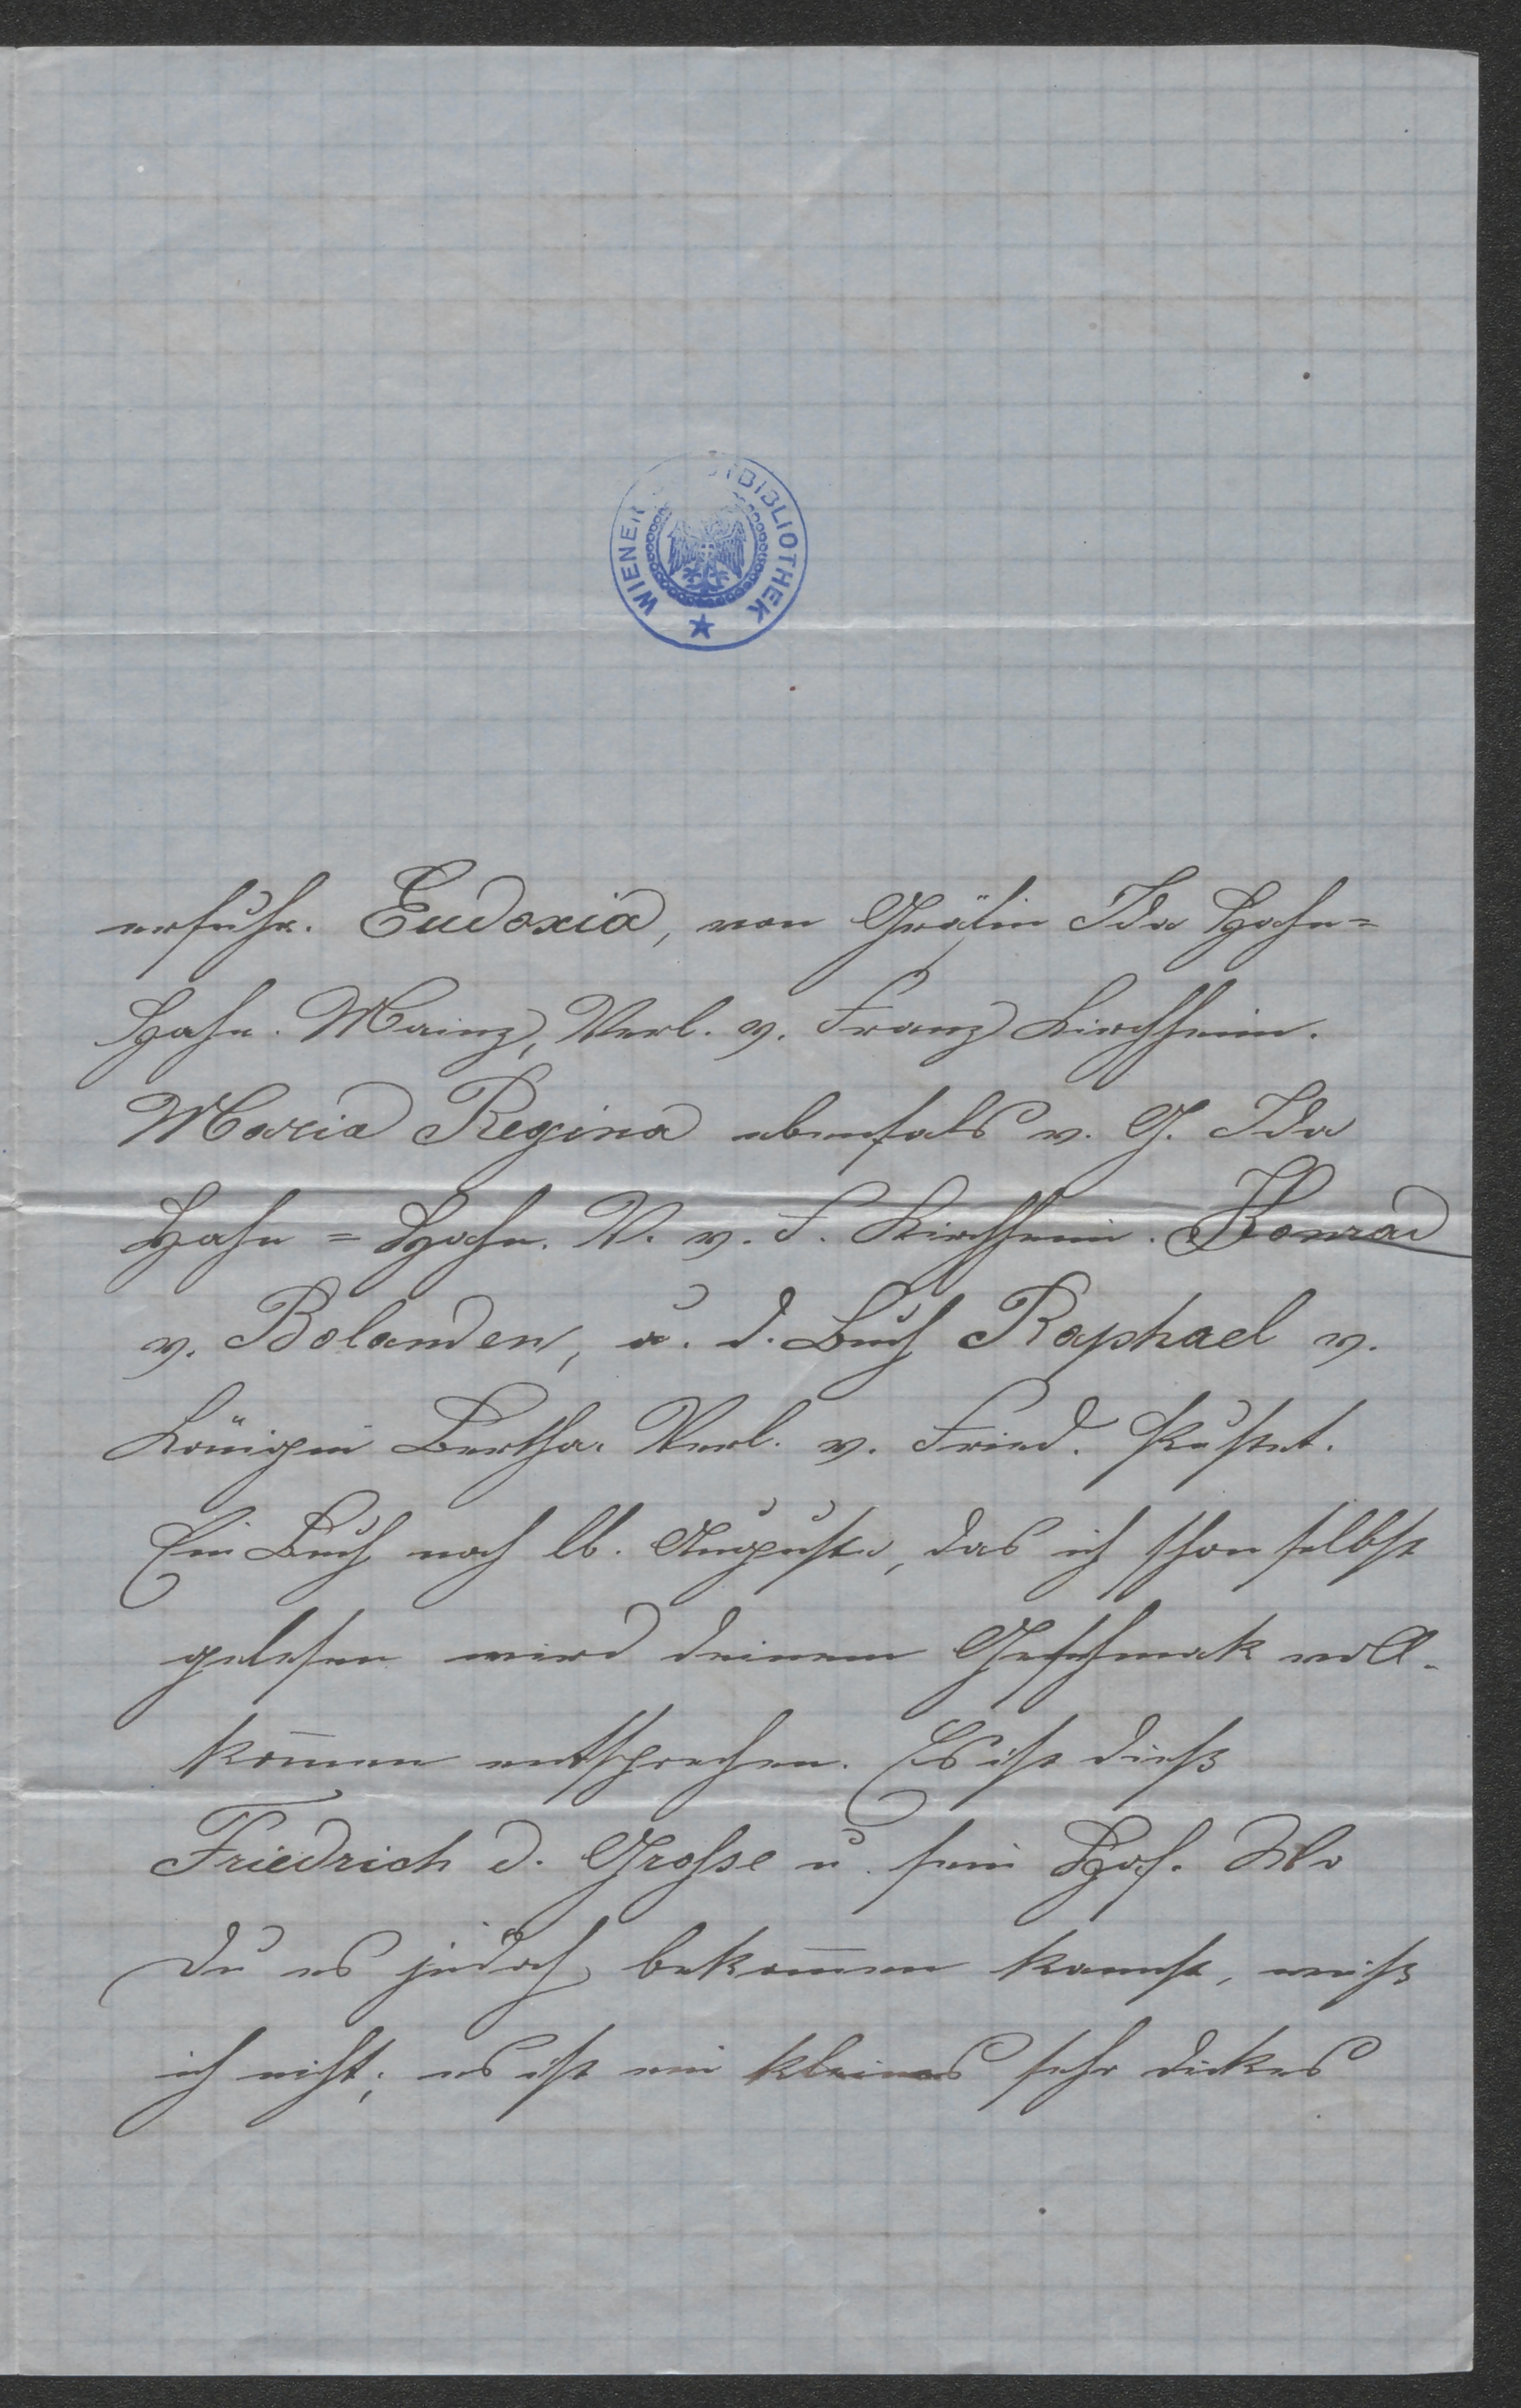 WIENER STADTBIBLIOTHEK
erfuhr. Eudoxia, von Gräfin Ida Hahn=
Hahn. Mainz, Verl. v. Franz Kirchheim.
Maria Regina ebenfals v. G. Ida
Hahn = Hahn. V. v. F. Kirchheim. Konrad
v. Bolanden, u. d. Buch Raphael v.
Königin Bertha. Verl. v. Fried. Pustet.
Ein Buch noch lb. Auguste, das ich schon selbst
gelesen wird deinem Geschmack voll-
kom̅en entsprechen. Es ist dieß
Friedrich d. Grosse u. sein Hof. Wo
du es jedoch bekom̅en kannst, weiß
ich nicht; es ist ein kleines sehr dickes